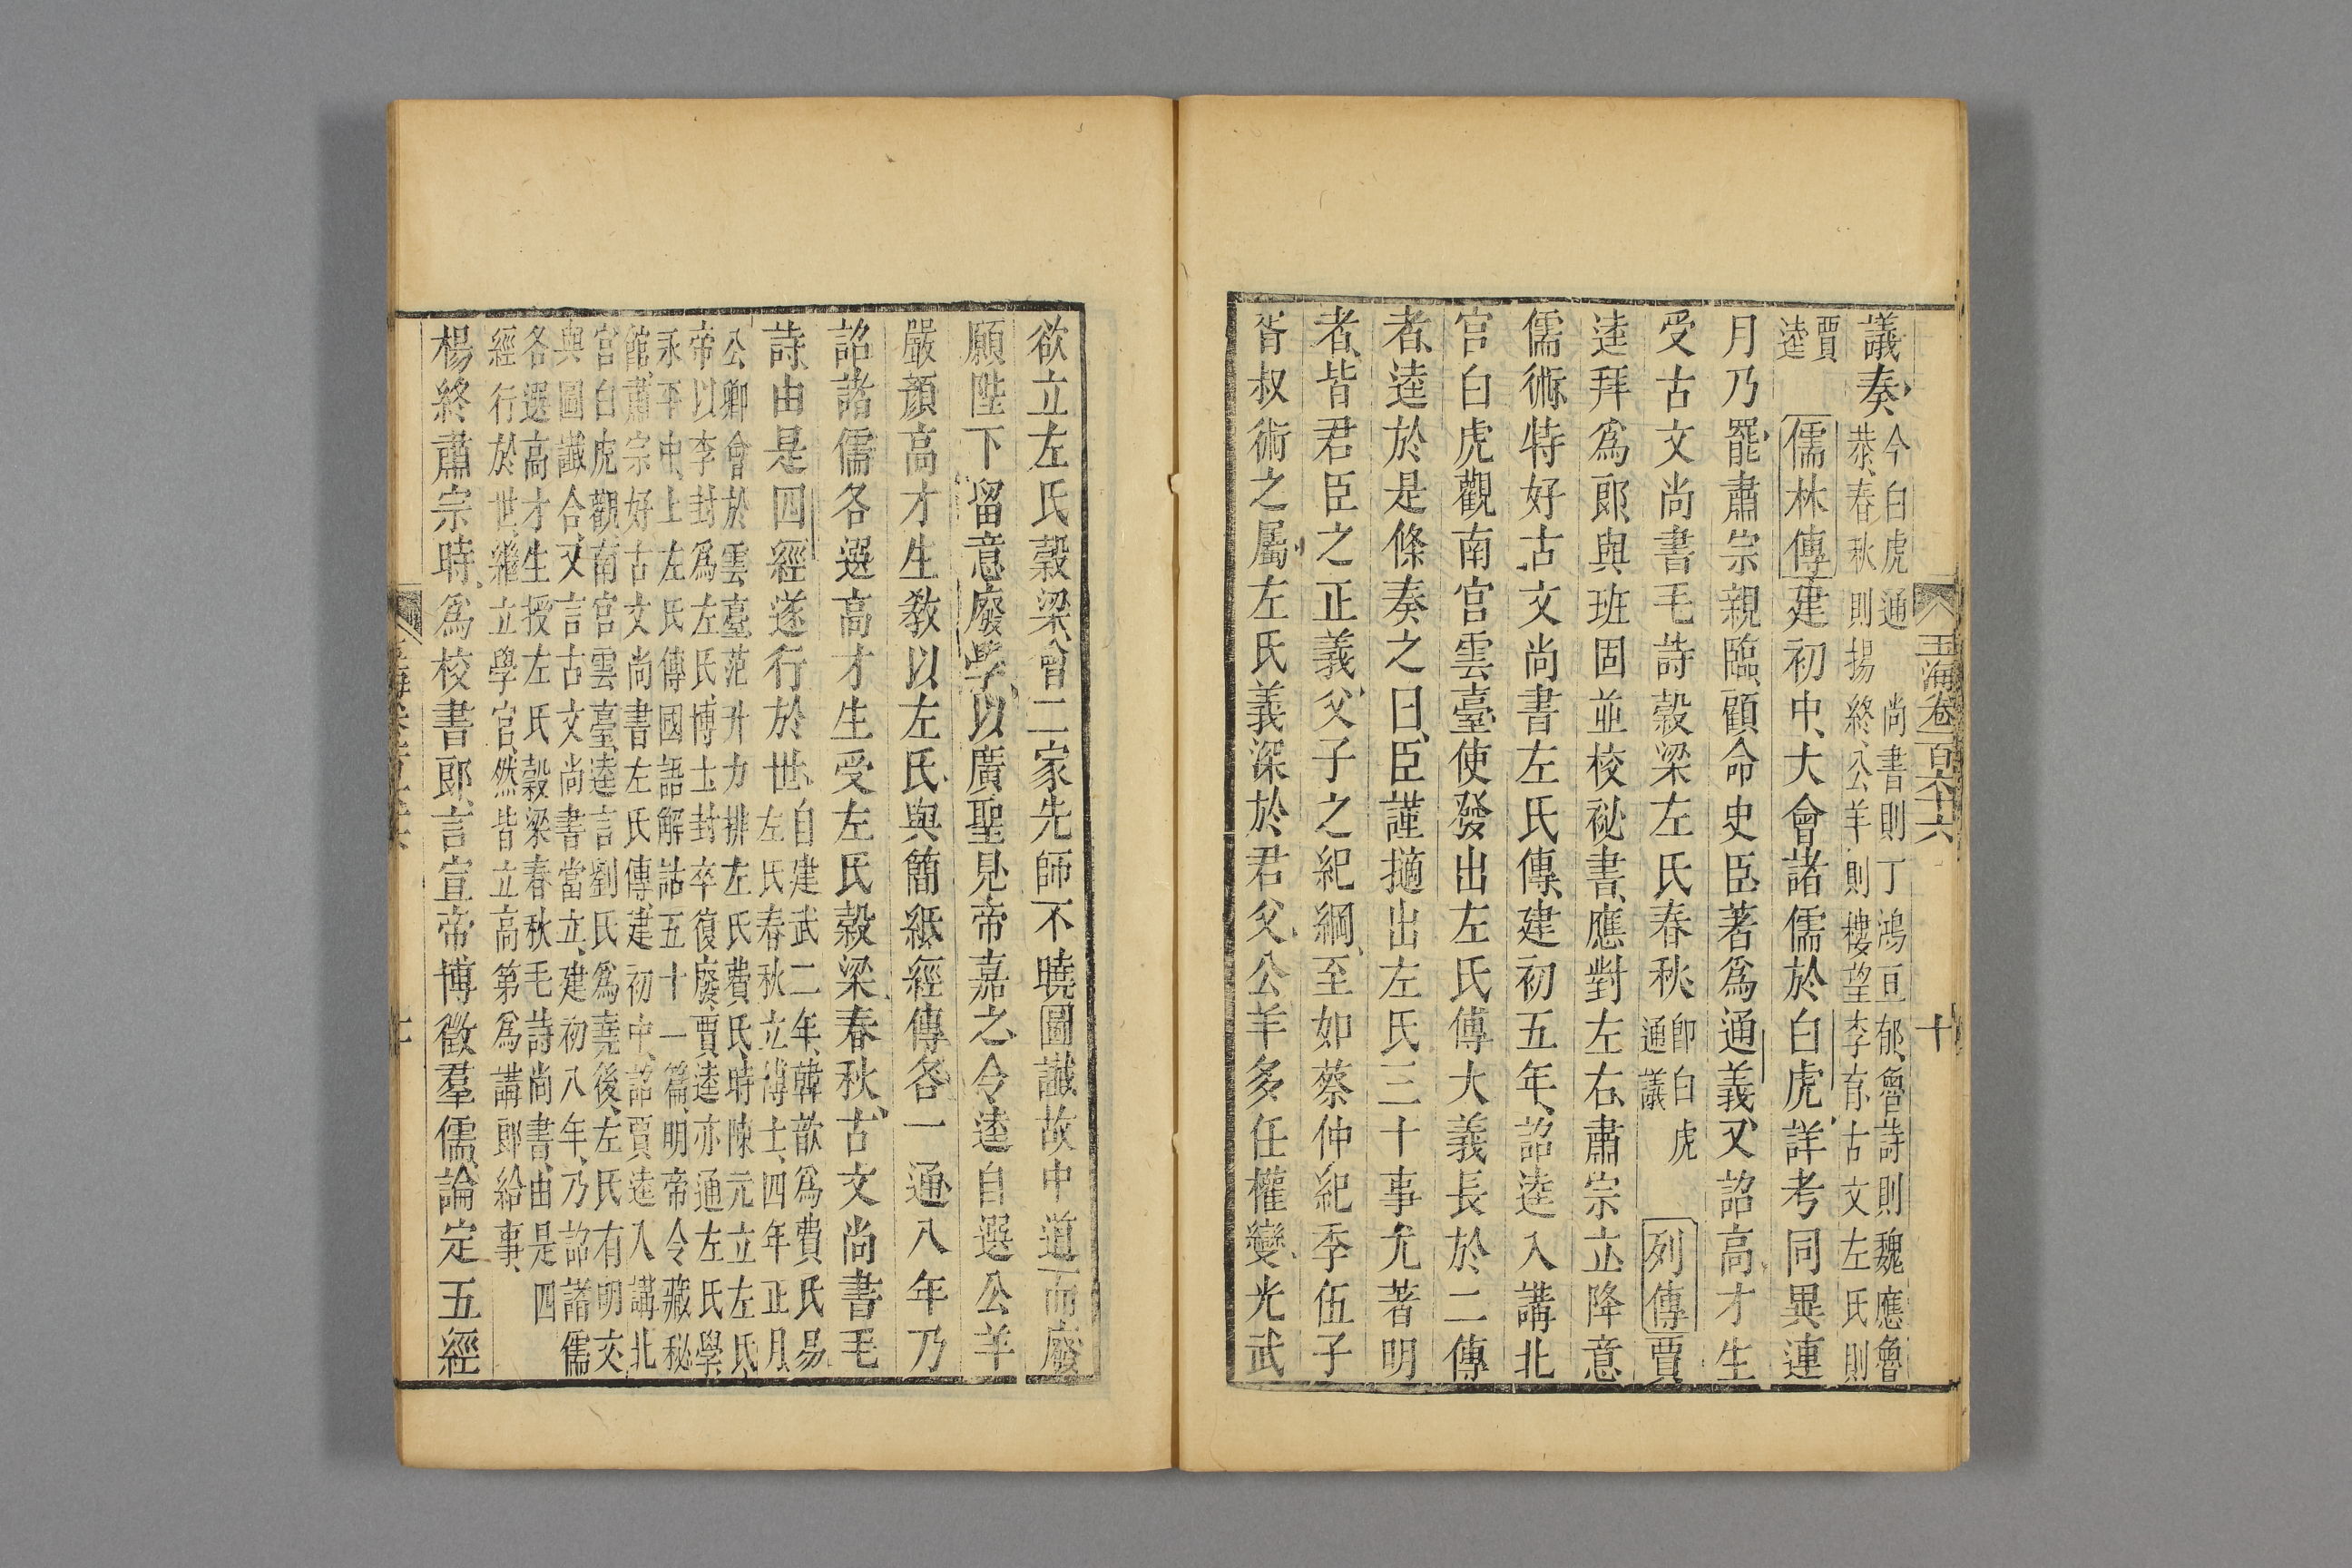 玉海卷一百六十六
十
議奏今白虎通 尚書則丁鴻亘郁魯詩則魏應魯
恭春秋則揚終公羊則樓望李育古文左氏則
賈
逵
儒林傳建初中大會諸儒於白虎詳考同異連
月乃罷肅宗親臨顧命史臣著為通義又詔高才生
受古文尚書毛詩穀梁左氏春秋即白虎
通議
列傳賈
逵拜為郎與班固並校祕書應對左右肅宗立降意
儒術特好古文尚書左氏傳建初五年詔逵入講北
宮白虎觀南宮雲臺使發出左氏傳大義長於二傳
者逵於是條奏之曰臣謹擿出左氏三十事尤著明
者皆君臣之正義父子之紀綱至如蔡仲紀季伍子
胥叔術之屬左氏義深於君父公羊多任權變光武
欲立左氏穀梁會二家先師不曉圖讖故中道而廢
願陛下留意廢學以廣聖見帝嘉之令逵自選公羊
嚴顏高才生教以左氏與簡紙經傳各一通八年乃
詔諸儒各選高才生受左氏穀梁春秋古文尚書毛
詩由是四經遂行於世自建武二年韓歆為費氏易
左氏春秋立博士四年正月
公卿會於雲臺范升力排左氏費氏時陳元立左氏
帝以李封為左氏博士封卒復廢賈逵亦通左氏學
永平中上左氏傳國語解詁五十一篇明帝令藏秘
館肅宗好古文尚書左氏傳建初中詔賈逵入講北
宮白虎觀南宮雲臺逵言劉氏為堯後左氏有明文
與圖讖合又言古文尚書當立建初八年乃詔諸儒
各選高才生授左氏穀梁春秋毛詩尚書由是四
經行於世雖立學官然皆立高第為講郎給事
楊終肅宗時為校書郎言宣帝博徵羣儒論定五經